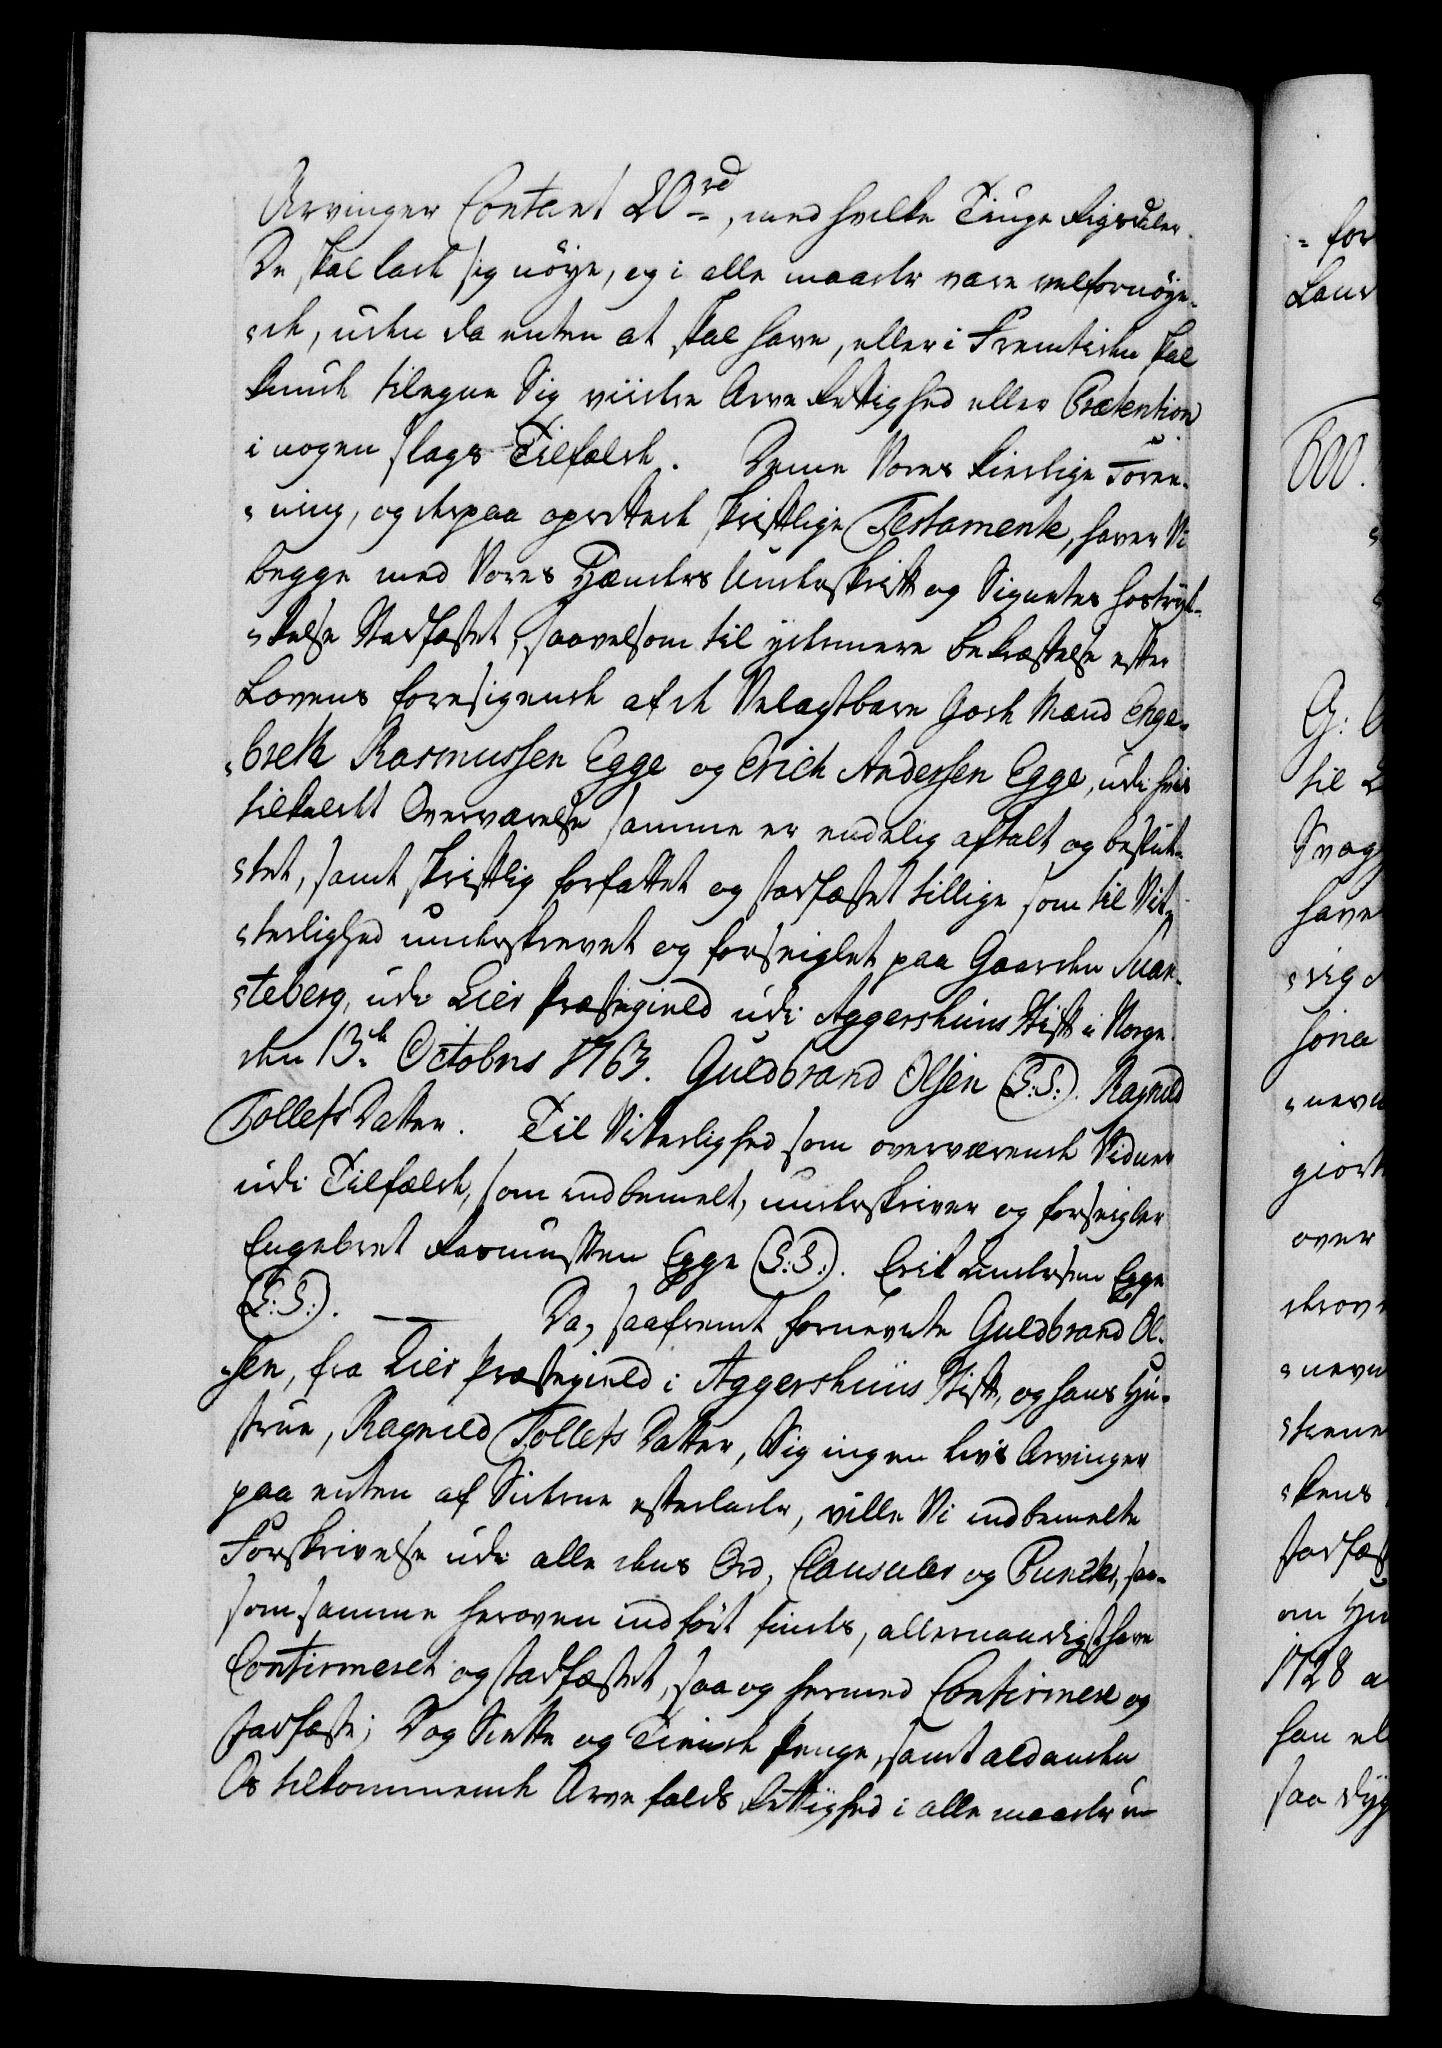 Arvinger Contant 20 rd, med hvilke Tiuge Rigsdaler
De skal lade sig nöye, og i alle maader være velfornöye-
de, uden da enten at skal have, eller i Fremtiden skal
kunde tilegne Sig viidre Arve Rettighed eller Prætention
i nogen slags Tilfælde. Denne Vores kierlige Foree-
ning, og derpaa oprettede skriftlige Testamente, haver Vi
begge med Vores Hænders Underskrift og Signeters hostryk-
kelse Stadfæstet, saavelsom til ydermere bekræftelse efter
Lovens foresigende af de Velagtbare Gode Mænd Enge-
brett Rasmussen Egge og Erich Andersen Egge, udi hvis
tilkaldte Overværelse samme er endelig aftalt og beslut-
tet, samt skriftlig forfattet og stadfæstet tillige som til Vit-
terlighed underskrevet og forseiglet paa Gaarden
teberg, udi Lier Præstegield udi Aggershuus Stift i Norge
den 13de Octobris 1763. Guldbrand Olsen (L:S:). Ragnild
Tollefs Datter. Til Vitterlighed som overværende Vidner
udi Tilfælde, som indbemelt, underskriver og forseigler
Engebret Rasmussen Egge (L:S:). Erik Andersen Egge
(L:S:). — Da, saafremt fornevnte Guldbrand Ol-
sen, fra Lier Præstegield i Aggershuus Stift, og hans Hu-
strue, Ragnild Tollefs Datter, Sig ingen livs Arvinger
paa enten af Siderne efterlader, ville Vi indbemelte
Forskrivelse udi alle dens Ord, Clausuler og Puncter, saa-
som samme heroven indfört findes, allernaadigst have
Confirmeret og stadfæstet, saa og hermed Confirmere og
stadfæste; Dog Siette og Tiende Penge, samt al anden
Os tilkommende Arve falds Rettighed i alle maader u-